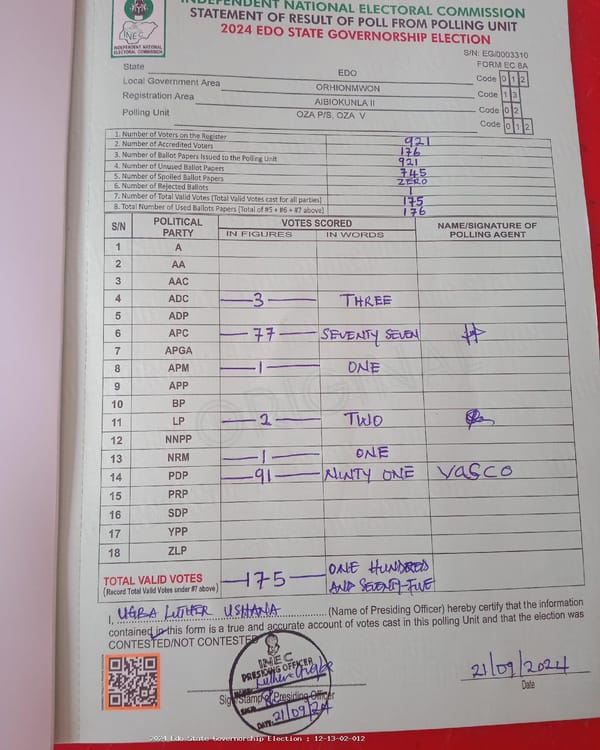 INDEPENDENT NATIONAL ELECTORAL COMMISSION
STATEMENT OF RESULT OF POLL FROM POLLING UNIT
2024 EDO STATE GOVERNORSHIP ELECTION
INEC
INDEPENDENT NATIONAL
ELECTORAL COMMISSION
S/N: EG/0003310
FORM EC 8A
State EDO Code 0 1 2
Local Government Area ORHIONMWON Code 1 3
Registration Area AIBIOKUNLA II Code 0 2
Polling Unit OZA P/S, OZA V Code 0 1 2
1. Number of Voters on the Register 921
2. Number of Accredited Voters 176
3. Number of Ballot Papers Issued to the Polling Unit 921
4. Number of Unused Ballot Papers 745
5. Number of Spoiled Ballot Papers ZERO
6. Number of Rejected Ballots 1
7. Number of Total Valid Votes (Total Valid Votes cast for all parties) 175
8. Total Number of Used Ballots Papers (Total of #5 + #6 + #7 above) 176
S/N POLITICAL PARTY VOTES SCORED NAME/SIGNATURE OF POLLING AGENT
IN FIGURES IN WORDS
1 A
2 AA
3 AAC
4 ADC 3 THREE
5 ADP
6 APC 77 SEVENTY SEVEN
7 APGA
8 APM 1 ONE
9 APP
10 BP
11 LP 2 TWO
12 NNPP
13 NRM 1 ONE
14 PDP 91 NINTY ONE VASCO
15 PRP
16 SDP
17 YPP
18 ZLP
TOTAL VALID VOTES 175 ONE HUNDRED
(Record Total Valid Votes under #7 above) AND SEVENTY-FIVE
I, UGBA LUTHER USHANA (Name of Presiding Officer) hereby certify that the information
contained in this form is a true and accurate account of votes cast in this polling Unit and that the election was
CONTESTED/NOT CONTESTED
INEC
PRESIDING OFFICER
Sign/Stamp of Presiding Officer
DATE: 21/09/24
21/09/2024
Date
ORIGINAL
2024 Edo State Governorship Election : 12-13-02-012